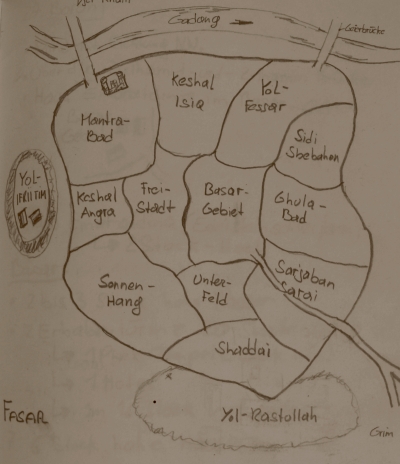 Djer Tulam
Gadang
Geierbrücke
Keshal
Isiq
Yol-
Fessar
Mantra-
Bad
Sidi
Shebahan
Yol-
IFRIITIM
Keshal
Angra
Frei-
Stadt
Basar-
Gebiet
Ghula-
Bad
Sonnen-
Hang
Unter-
Feld
Sarjaban
Sarai
Shaddai
FASAR
Yol-Rastollah